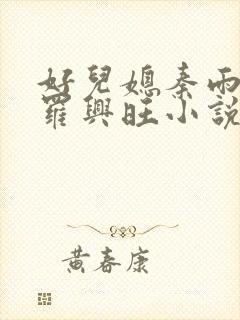 好兒媳秦雨
羅興旺小說
黃春康